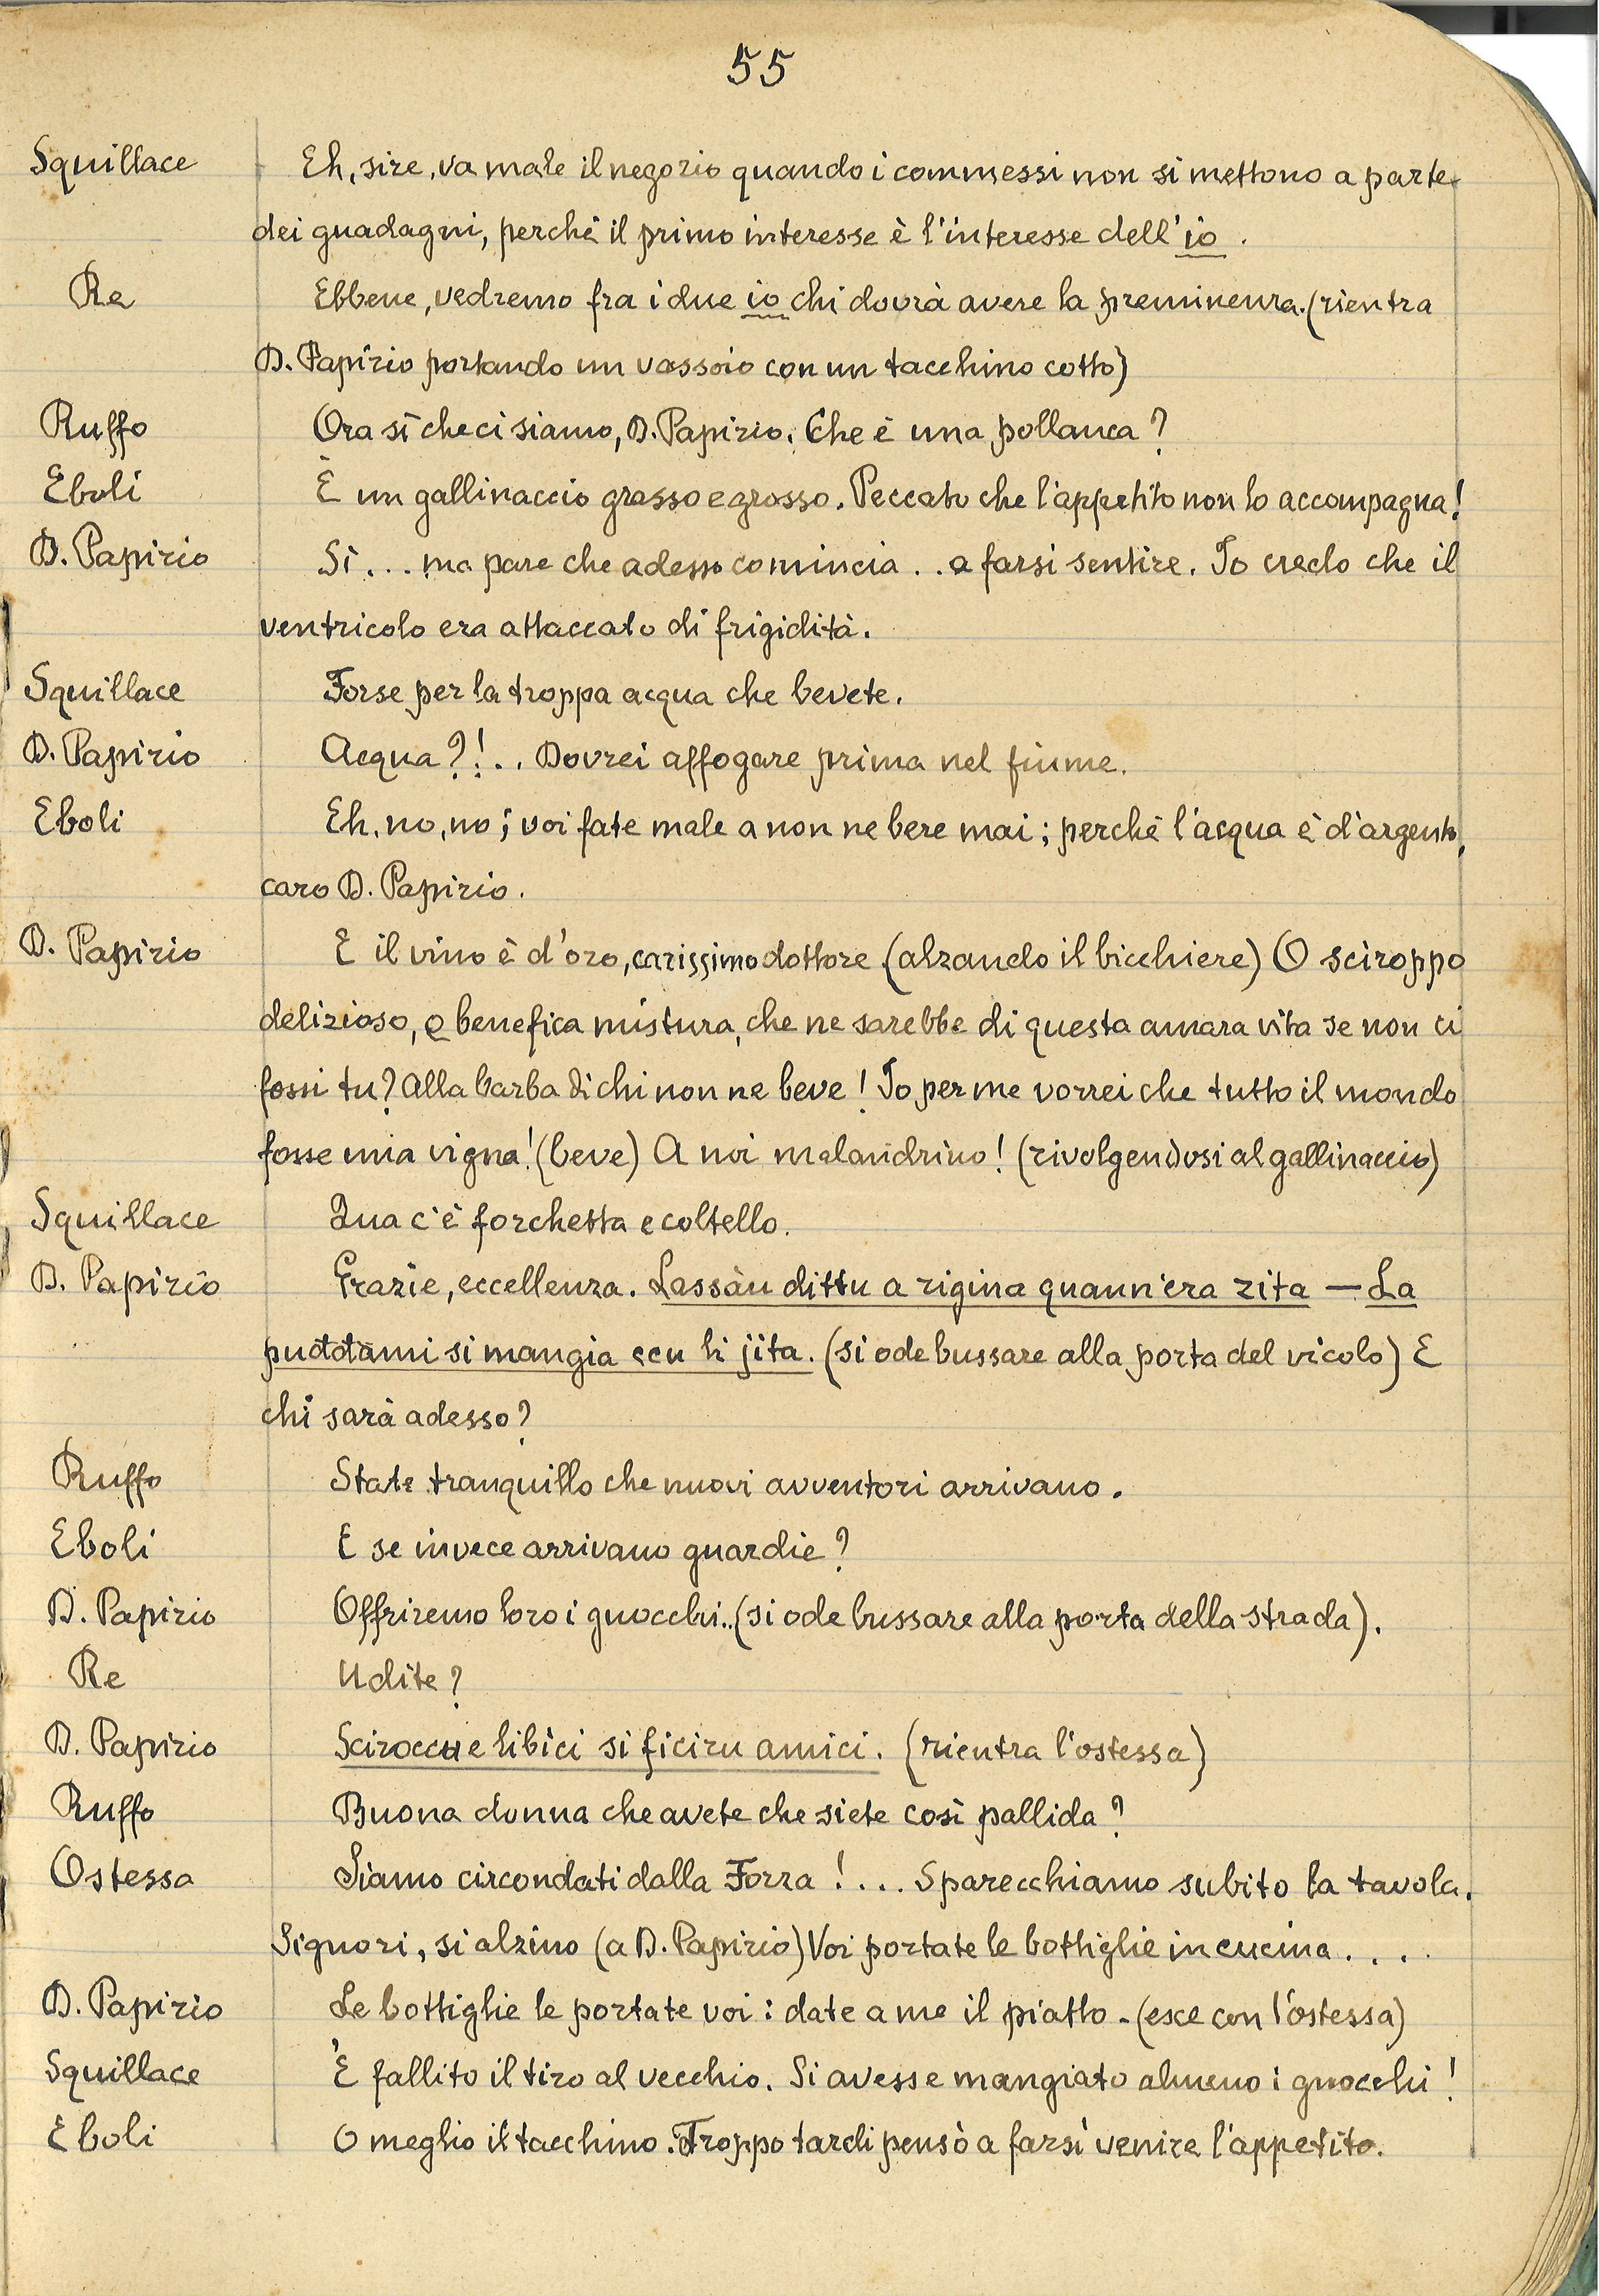 55
Squillace Eh, sire, va male il negozio quando i commessi non si mettono a parte
dei guadagni, perchè il primo interesse è l'interesse dell'io.
Re Ebbene, vedremo fra i due io chi dovrà avere la preminenza. (rientra
D. Papirio portando un vassoio con un tacchino cotto)
Ruffo Ora sì che ci siamo, D. Papirio. Che è una pollanca?
Eboli È un gallinaccio grasso e grosso. Peccato che l'appetito non lo accompagna!
D. Papirio Sì... ma pare che adesso comincia.. a farsi sentire. Io credo che il
ventricolo era attaccato di frigidità.
Squillace Forse per la troppa acqua che bevete.
D. Papirio Acqua?!.. Dovrei affogare prima nel fiume.
Eboli Eh, no, no; voi fate male a non ne bere mai; perchè l'acqua è d'argento,
caro D. Papirio.
D. Papirio E il vino è d'oro, carissimo dottore (alzando il bicchiere) O sciroppo
delizioso, o benefica mistura, che ne sarebbe di questa amara vita se non ci
fossi tu? Alla barba di chi non ne beve! Io per me vorrei che tutto il mondo
fosse mia vigna! (beve) A noi malandrino! (rivolgendosi al gallinaccio)
Squillace Qua c'è forchetta e coltello.
D. Papirio Grazie, eccellenza. Lassàu dittu a rigina quann'era zita — La
puddami si mangia ccu li jita. (si ode bussare alla porta del vicolo) E
chi sarà adesso?
Ruffo State tranquillo che nuovi avventori arrivano.
Eboli E se invece arrivano guardie?
D. Papirio Offriremo loro i gnocchi.. (si ode bussare alla porta della strada).
Re Udite?
D. Papirio Sciroccu e libici si ficiru amici. (rientra l'ostessa)
Ruffo Buona donna che avete che siete così pallida?
Ostessa Siamo circondati dalla Forza!... Sparecchiamo subito la tavola.
Signori, si alzino (a D. Papirio) Voi portate le bottiglie in cucina....
D. Papirio Le bottiglie le portate voi: date a me il piatto. (esce con l'ostessa)
Squillace È fallito il tiro al vecchio. Si avesse mangiato almeno i gnocchi!
Eboli O meglio il tacchino. Troppo tardi pensò a farsi venire l'appetito.